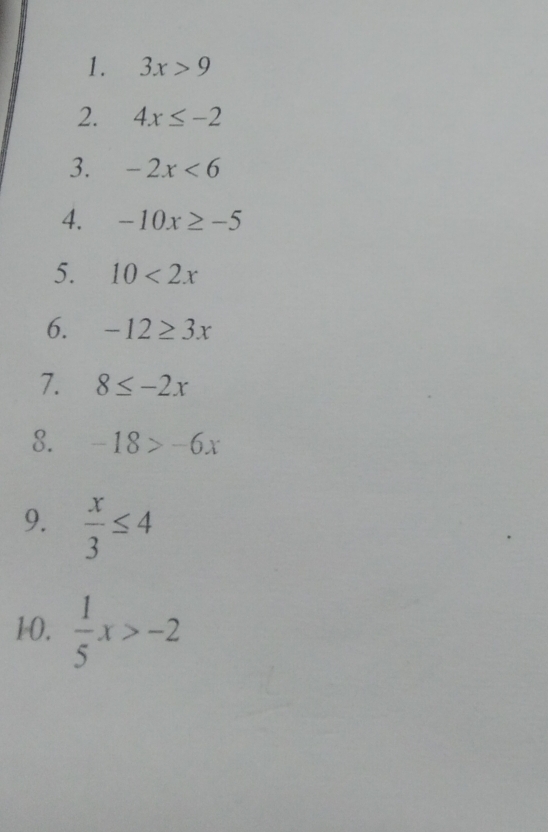 1. 3x > 9
2. 4x ≤ −2
3. −2x < 6
4. −10x ≥ −5
5. 10 < 2x
6. −12 ≥ 3x
7. 8 ≤ −2x
8. −18 > −6x
9. x/3 ≤ 4
10. 1/5 x > −2